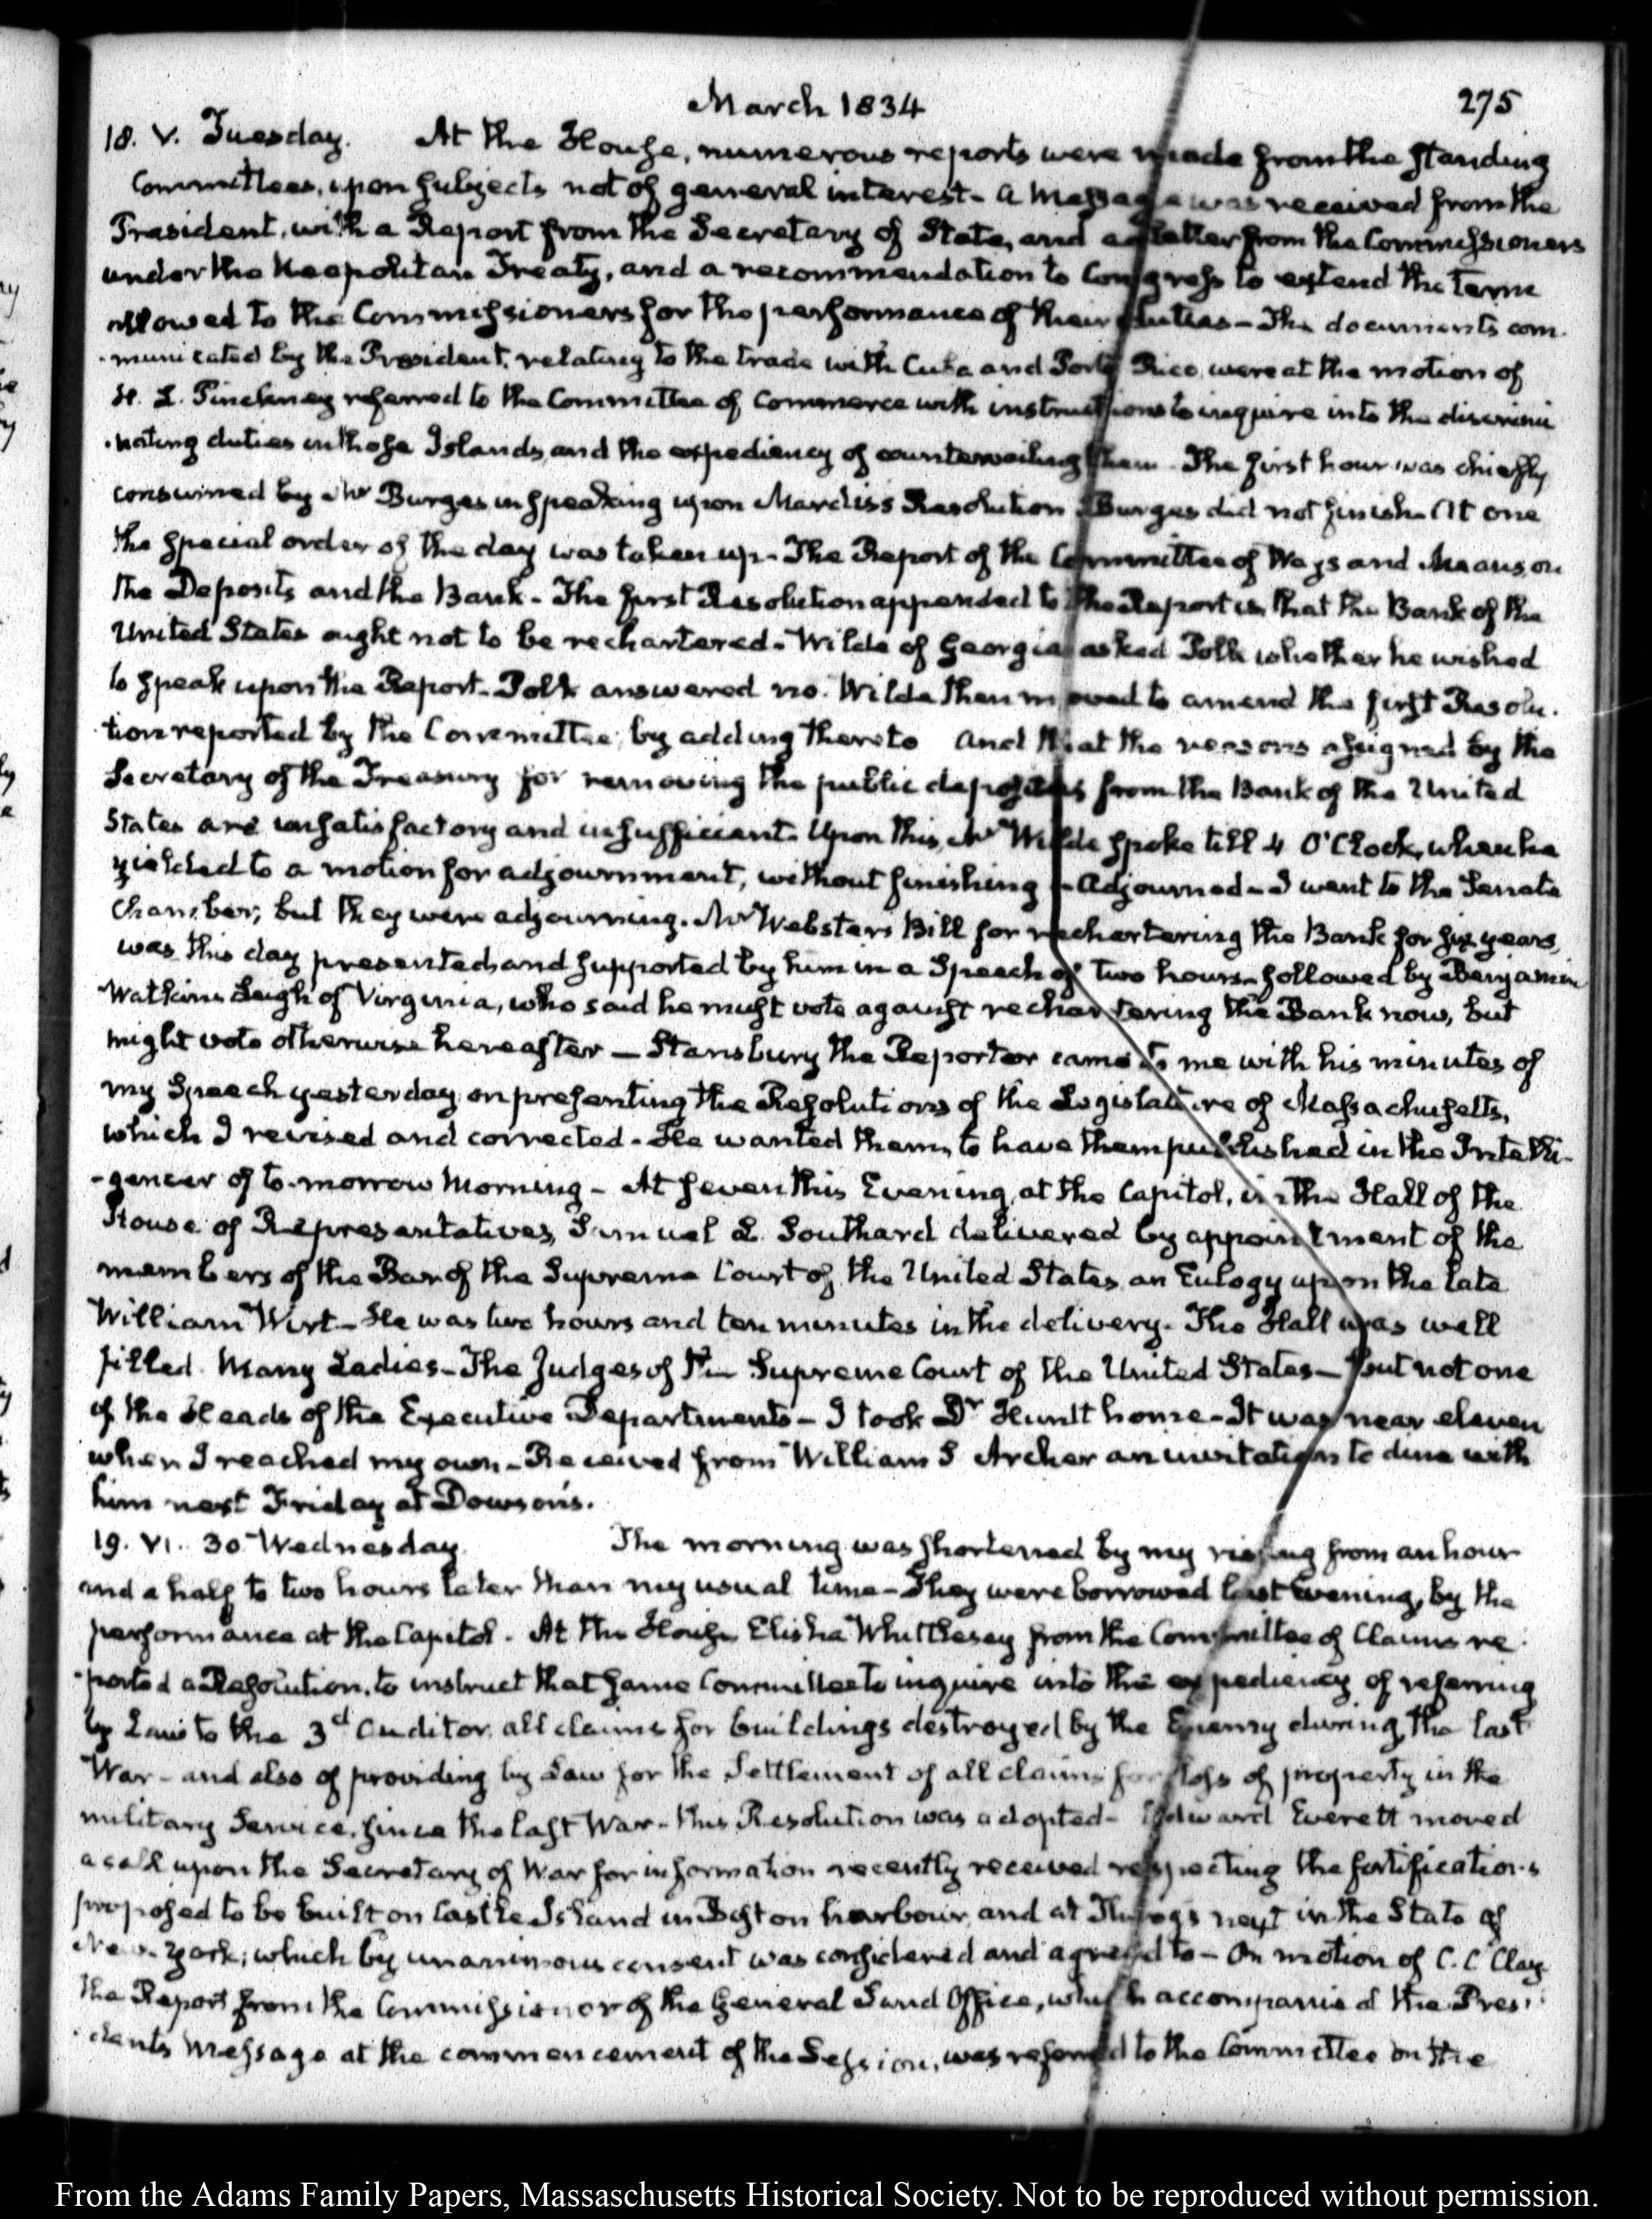 March 1834
275
18. V. Tuesday. At the House, numerous reports were made from the standing
Committees, upon subjects not of general interest- a Message was received from the
President, with a Report from the Secretary of State, and a letter from the Commissioners
under the Neapolitan Treaty, and a recommendation to Congress to extend the term
allowed to the Commissioners for the performance of their duties- The documents com-
-municated by the President, relating to the trade with Cuba and Porto Rico, were at the motion of
H. L. Pinckney referred to the Committee of Commerce with instructions to inquire into the discrimi
-nating duties in those Islands, and the expediency of countervailing them. The first hour was chiefly
consumed by Mr Burges in speaking upon Mardis's Resolution Burges did not finish. At one
the special order of the day was taken up- The Report of the Committee of Ways and Means, on
the Deposits and the Bank- The first Resolution appended to the Report is, that the Bank of the
United States ought not to be rechartered- Wilde of Georgia asked Polk whether he wished
to speak upon the Report- Polk answered no. Wilde then moved to amend the first Resolu-
-tion reported by the Committee, by adding thereto and that the reasons assigned by the
Secretary of the Treasury for removing the public deposites from the Bank of the United
States are unsatisfactory and insufficient. Upon this, Mr Wilde spoke till 4 O'Clock, when he
yielded to a motion for adjournment, without finishing - Adjourned- I went to the Senate
Chamber; but they were adjourning. Mr Webster's Bill for rechartering the Bank for six years,
was this day presented and supported by him in a Speech of two hours- followed by Benjamin
Watkins Leigh of Virginia, who said he must vote against rechartering the Bank now, but
might vote otherwise hereafter — Stansbury the Reporter came to me with his minutes of
my Speech yesterday, on presenting the Resolutions of the Legislature of Massachusetts,
which I revised and corrected- He wanted them, to have them published in the Intelli-
-gencer of to-morrow Morning- At seven this Evening, at the Capitol, in the Hall of the
House of Representatives, Samuel L. Southard delivered by appointment of the
members of the Bar of the Supreme Court of the United States, an Eulogy upon the late
William Wirt- He was two hours and ten minutes in the delivery. The Hall was well
filled. Many Ladies- The Judges of the Supreme Court of the United States- but not one
of the Heads of the Executive Departments- I took Dr Hunt home- It was near eleven
when I reached my own- Received from William S Archer an invitation to dine with
him next Friday at Dowson's.
19. VI. 30 Wednesday. The morning was shortened by my rising from an hour
and a half to two hours later than my usual time- They were borrowed last Evening, by the
performance at the Capitol. At the House Elisha Whittlesey from the Committee of Claims re-
-ported a Resolution, to instruct that same Committee to inquire into the expediency of referring
by Law to the 3d Auditor, all claims for buildings destroyed by the Enemy during the last
War- and also of providing by Law for the Settlement of all claims for loss of property in the
military Service, since the last War- this Resolution was adopted- Edward Everett moved
a call upon the Secretary of War for information recently received respecting the fortifications
proposed to be built on Castle Island in Boston harbour, and at Throgs neck in the State of
New-York; which by unanimous consent was considered and agreed to- On motion of C. C Clay
the Report from the Commissioner of the General Land Office, which accompanied the Presi-
-dents Message at the commencement of the Session, was referred to the Committee on the
From the Adams Family Papers, Massaschusetts Historical Society. Not to be reproduced without permission.